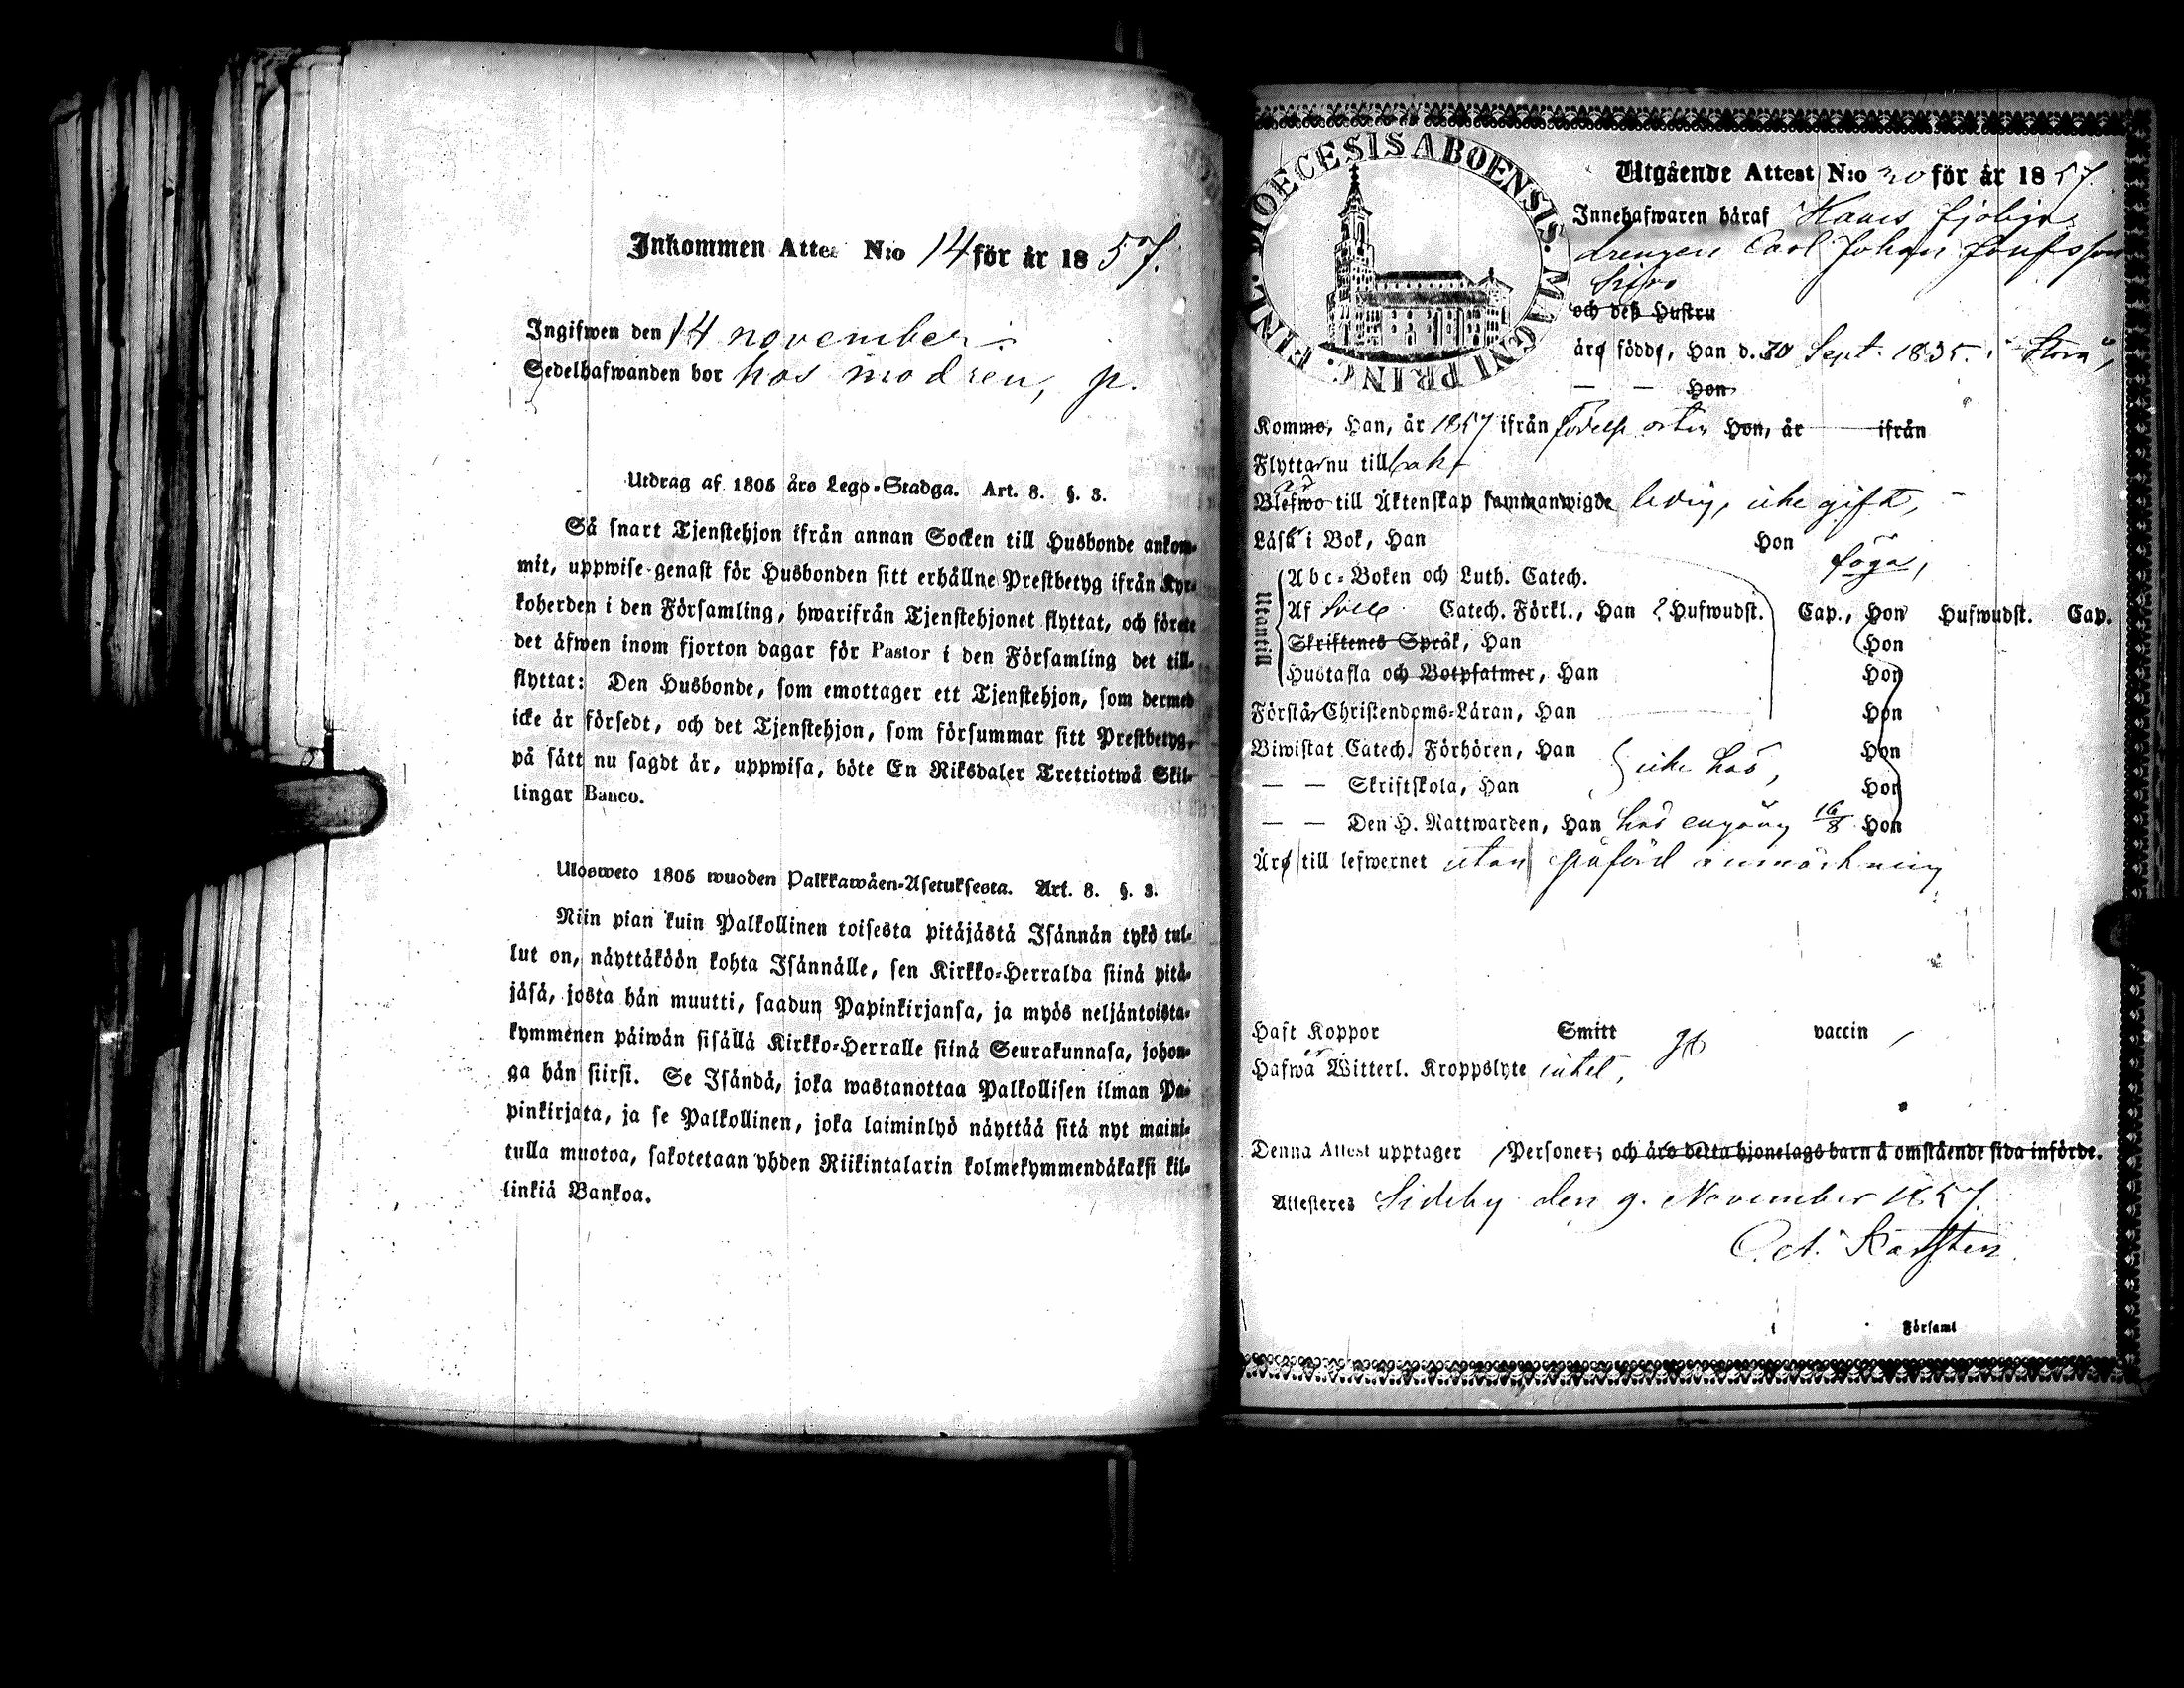 Inkommen Attest N:o 14 för år 1857.
Ingifwen den 14 november.
Sedelhafwanden bor hos modren, p.
Utdrag af 1805 års Lego-Stadga. Art. 8. §. 3.
Så snart Tjenstehjon ifrån annan Socken till Husbonde ankom-
mit, uppwise genast för Husbonden sitt erhållne Prestbetyg ifrån Kyr-
koherden i den Församling, hwarifrån Tjenstehjonet flyttat, och förete
det äfwen inom fjorton dagar för Pastor i den Församling det till-
flyttat: Den Husbonde, som emottager ett Tjenstehjon, som dermed
icke är försedt, och det Tjenstehjon, som försummar sitt Prestbetyg,
på sätt nu sagdt är, uppwisa, böte En Riksdaler Trettiotwå Skil-
lingar Banco.
Ulosweto 1805 wuoden Palkkawäen-Asetuksesta. Art. 8. §. 3.
Niin pian kuin Palkollinen toisesta pitäjästä Isännän tykö tul-
lut on, näyttäköön kohta Isännälle, sen Kirkko-Herralda siinä pitä-
jäsä, josta hän muutti, saadun Papinkirjansa, ja myös neljäntoista-
kymmenen päiwän sisällä Kirkko-Herralle siinä Seurakunnasa, johon-
ga hän siirsi. Se Isändä, joka wastanottaa Palkollisen ilman Pa-
pinkirjata, ja se Palkollinen, joka laiminlyö näyttää sitä nyt maini-
tulla muotoa, sakotetaan yhden Riikintalarin kolmekymmendäkaksi kil-
linkiä Bankoa.
DIOECESIS ABOENSIS. MAGNI PRINC. FINL.
Utgående Attest N:o 20 för år 1857.
Innehafwaren häraf
drengen Carl Johan
och deß Hustru
äro födde, Han d. 30 Sept. 1835. i Storå,
— — Hon
Komme, Han, år 1857 ifrån födelse orten Hon, år ifrån
Flytta nu till baka
Blefwo till Äktenskap sammanwigde ledig, icke gift,
Läsa i Bok, Han Hon
föga,
Utantill
Abc-Boken och Luth. Catech.
Af Catech. Förkl., Han 2 Hufwudst. Cap., Hon Hufwudst. Cap.
Skriftenes Språk, Han Hon
Hustafla och Botpsalmer, Han Hon
Förstår Christendoms-Läran, Han Hon
Biwistat Catech. Förhören, Han Hon
icke här,
— — Skriftskola, Han Hon
— — Den H. Nattwarden, Han här engång 16/8 Hon
Äro till lefwernet utan påförd anmärkning
Haft Koppor Smitt vaccin
Hafwa Witterl. Kroppslyte intet,
Denna Attest upptager 1 Personer; och äro detta hjonelags barn å omstående sida införde.
Attesteres Sideby den 9. November 1857.
Karsten.
Församl